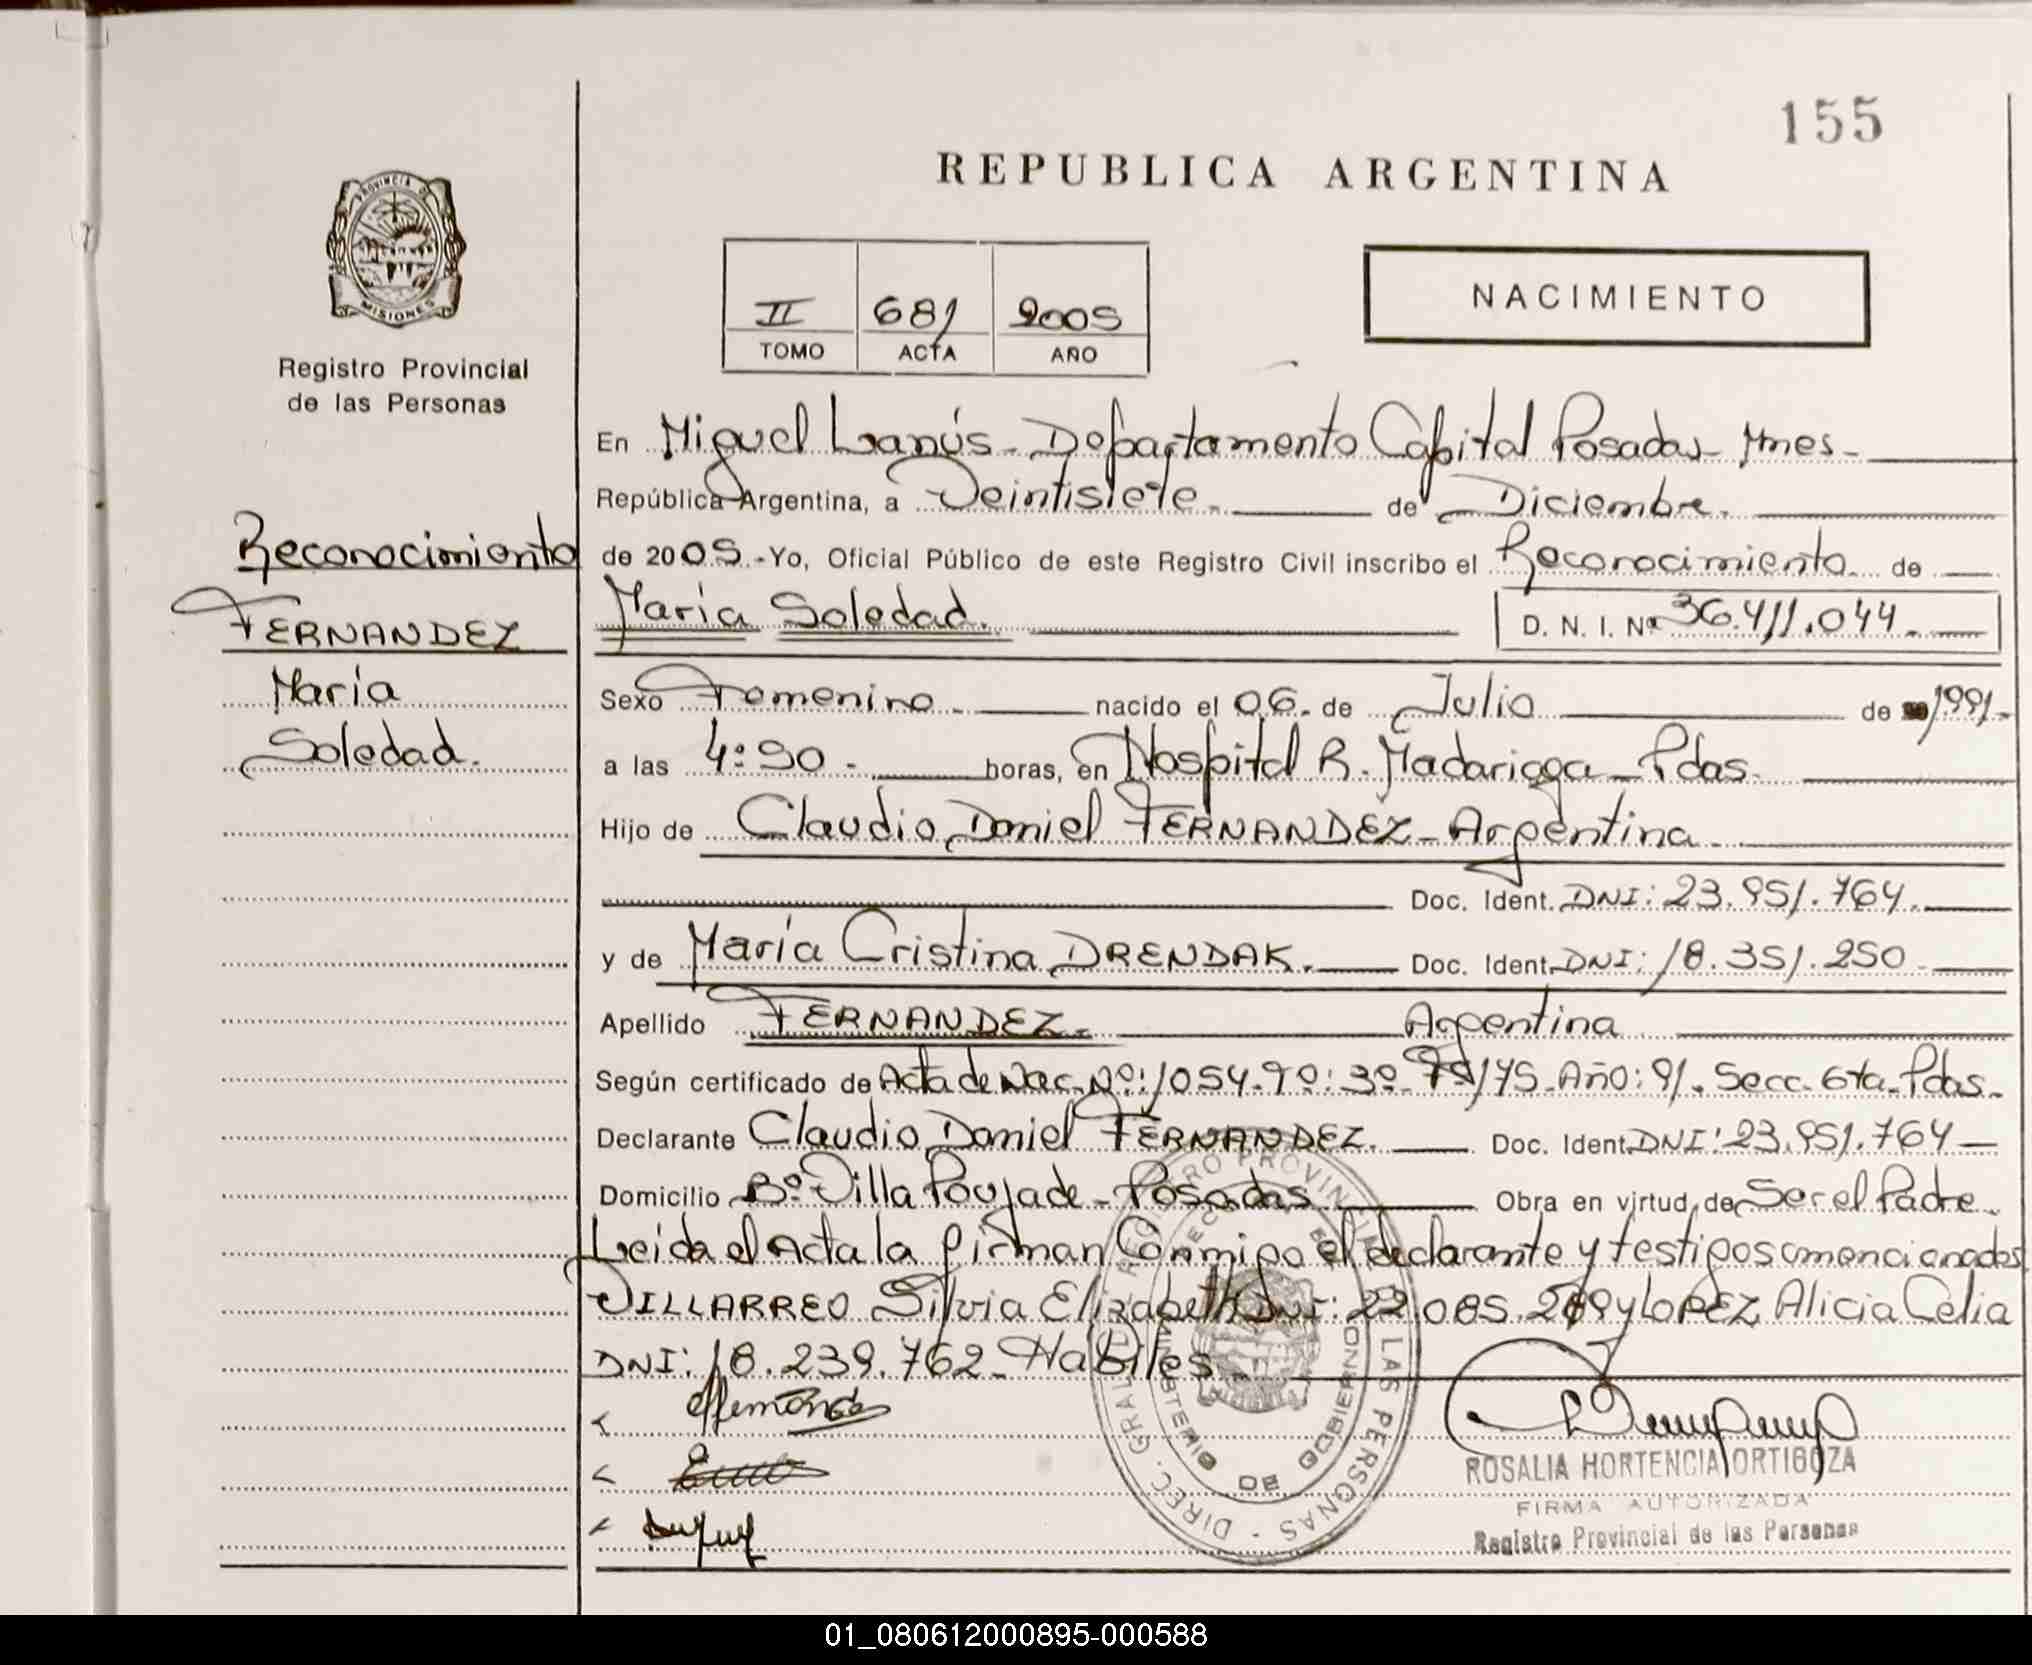 155
REPUBLICA ARGENTINA
PROVINCIA DE
MISIONES
Registro Provincial
de las Personas
II 681 2005
TOMO ACTA AÑO
NACIMIENTO
Reconocimiento
FERNANDEZ
María
Soledad.
En Miguel Lanús - Departamento Capital Posadas - Mnes -
República Argentina, a Veintisiete. de Diciembre.
de 2005.-Yo, Oficial Público de este Registro Civil inscribo el Reconocimiento de
María Soledad. D. N. I. Nº 36.411.044.
Sexo Femenino - nacido el 06. de Julio de 1991.
a las 4:50 - horas, en Hospital R. Madariaga - Pdas.
Hijo de Claudio Daniel FERNANDEZ - Argentina
Doc. Ident. DNI: 23.951.764.
y de María Cristina DRENDAK. Doc. Ident. DNI: 18.351.250
Apellido FERNANDEZ. Argentina
Según certificado de Acta de Nac. Nº: 1054. Tº: 3º 145 - Año: 91. Secc. 6ta - Pdas.
Declarante Claudio Daniel FERNANDEZ. Doc. Ident. DNI: 23.951.764
Domicilio Bº Villa Poujade - Posadas Obra en virtud de Ser el Padre.
Leida el Acta la firman Conmigo el declarante y testigos mencionados
VILLARREO Silvia Elizabeth DNI: 22.085. y LOPEZ Alicia Celia
DNI: 18.239.762 - Habiles.
DIREC. GRAL. REGISTRO PROVINCIAL DE LAS PERSONAS
MINISTERIO DE GOBIERNO
ROSALIA HORTENCIA ORTIGOZA
FIRMA AUTORIZADA
Registro Provincial de las Personas
01_080612000895-000588